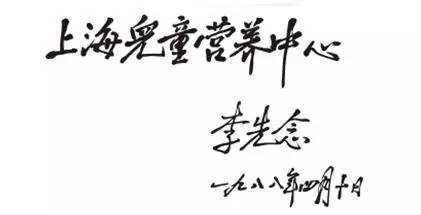 上海兒童营养中心
李先念
一九八八年四月十日